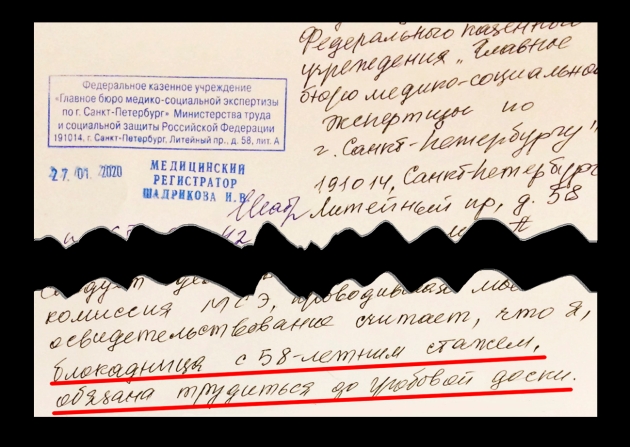 Федерального казенного
учреждения „Главное
бюро медико-социальной
экспертизы по
г. Санкт-Петербургу"
191014, Санкт-Петербург
Литейный пр, д. 58
Федеральное казенное учреждение
«Главное бюро медико-социальной экспертизы
по г. Санкт-Петербург» Министерства труда
и социальной защиты Российской Федерации
191014, г. Санкт-Петербург, Литейный пр., д. 58, лит. А
27. 01. 2020
МЕДИЦИНСКИЙ
РЕГИСТРАТОР
ШАДРИКОВА И.В.
комиссия МСЭ, проводившая мое
освидетельствование считает, что я,
блокадница с 58-летним стажем,
обязана трудиться до гробовой доски.